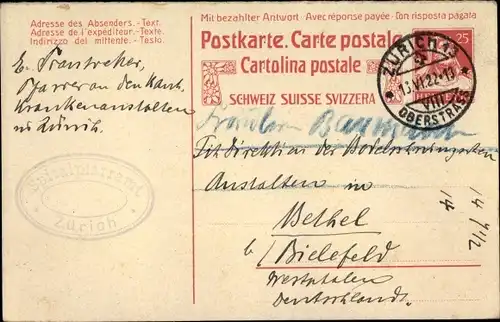 Adresse des Absenders. - Text.
Adresse de l'expéditeur. - Texte.
Indirizzo del mittente. - Testo.
Mit bezahlter Antwort · Avec réponse payée · Con risposta pagata
Postkarte. Carte postale
Cartolina postale
SCHWEIZ SUISSE SVIZZERA
25
ZÜRICH 13
13.VI.22-11
VIII
OBERSTRASS
Pfarrer an den Kant.
Krankenanstalten
in Zürich.
Spitalpfarramt
Zürich
Fräulein Baumann
Tit. Direktion der Bodelschwinghschen
Anstalten in
Bethel
b/ Bielefeld
Westphalen
Deutschland.
14 7 1/2
14